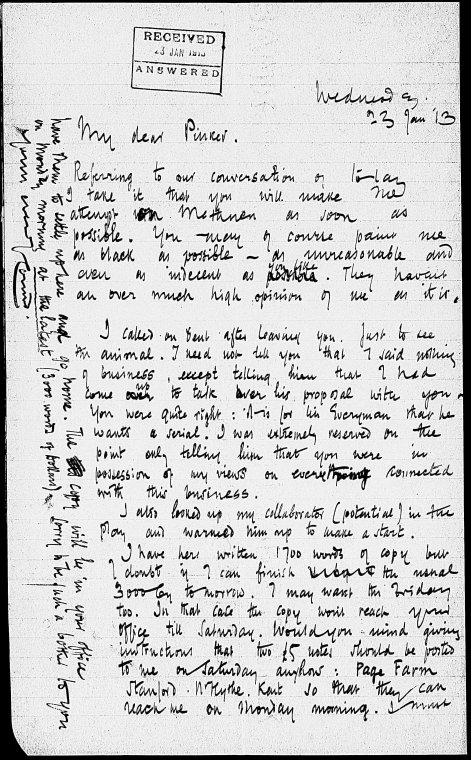 RECEIVED
23 JAN 1913
ANSWERED
Wednesday.
23 Jan '13
My dear Pinker.
Referring to our conversation of to-day
I take it that you will make the
attempt on Methuen as soon as
possible. You may of course paint me
as black as possible – as unreasonable and
even as indecent as you like. They havent
an over much high opinion of me as it is.
I called on Dent after leaving you. Just to see
the animal. I need not tell you that I said nothing
of business, except telling him that I had
come up to talk over his proposal with you.
You were quite right: it is for his Everyman that he
wants a serial. I was extremely reserved on the
point only telling him that you were in
possession of my views on everything connected
with this business.
I also looked up my collaborator (potential) in the
play and warmed him up to make a start.
I have here written 1700 words of copy but
I doubt if I can finish the usual
3000 by to morrow. I may want the Friday
too. In that case the copy won't reach your
office till Saturday. Would you mind giving
instructions that two £5 notes should be posted
to me on Saturday anyhow: Page Farm
Stanford N Hythe. Kent so that they can
reach me on Monday morning. I must
have them to settle up here and go home. The copy will be in your office
on Monday morning at the latest (3000 words of
Sorry to be such a bother to you
Yours ever
Conrad.